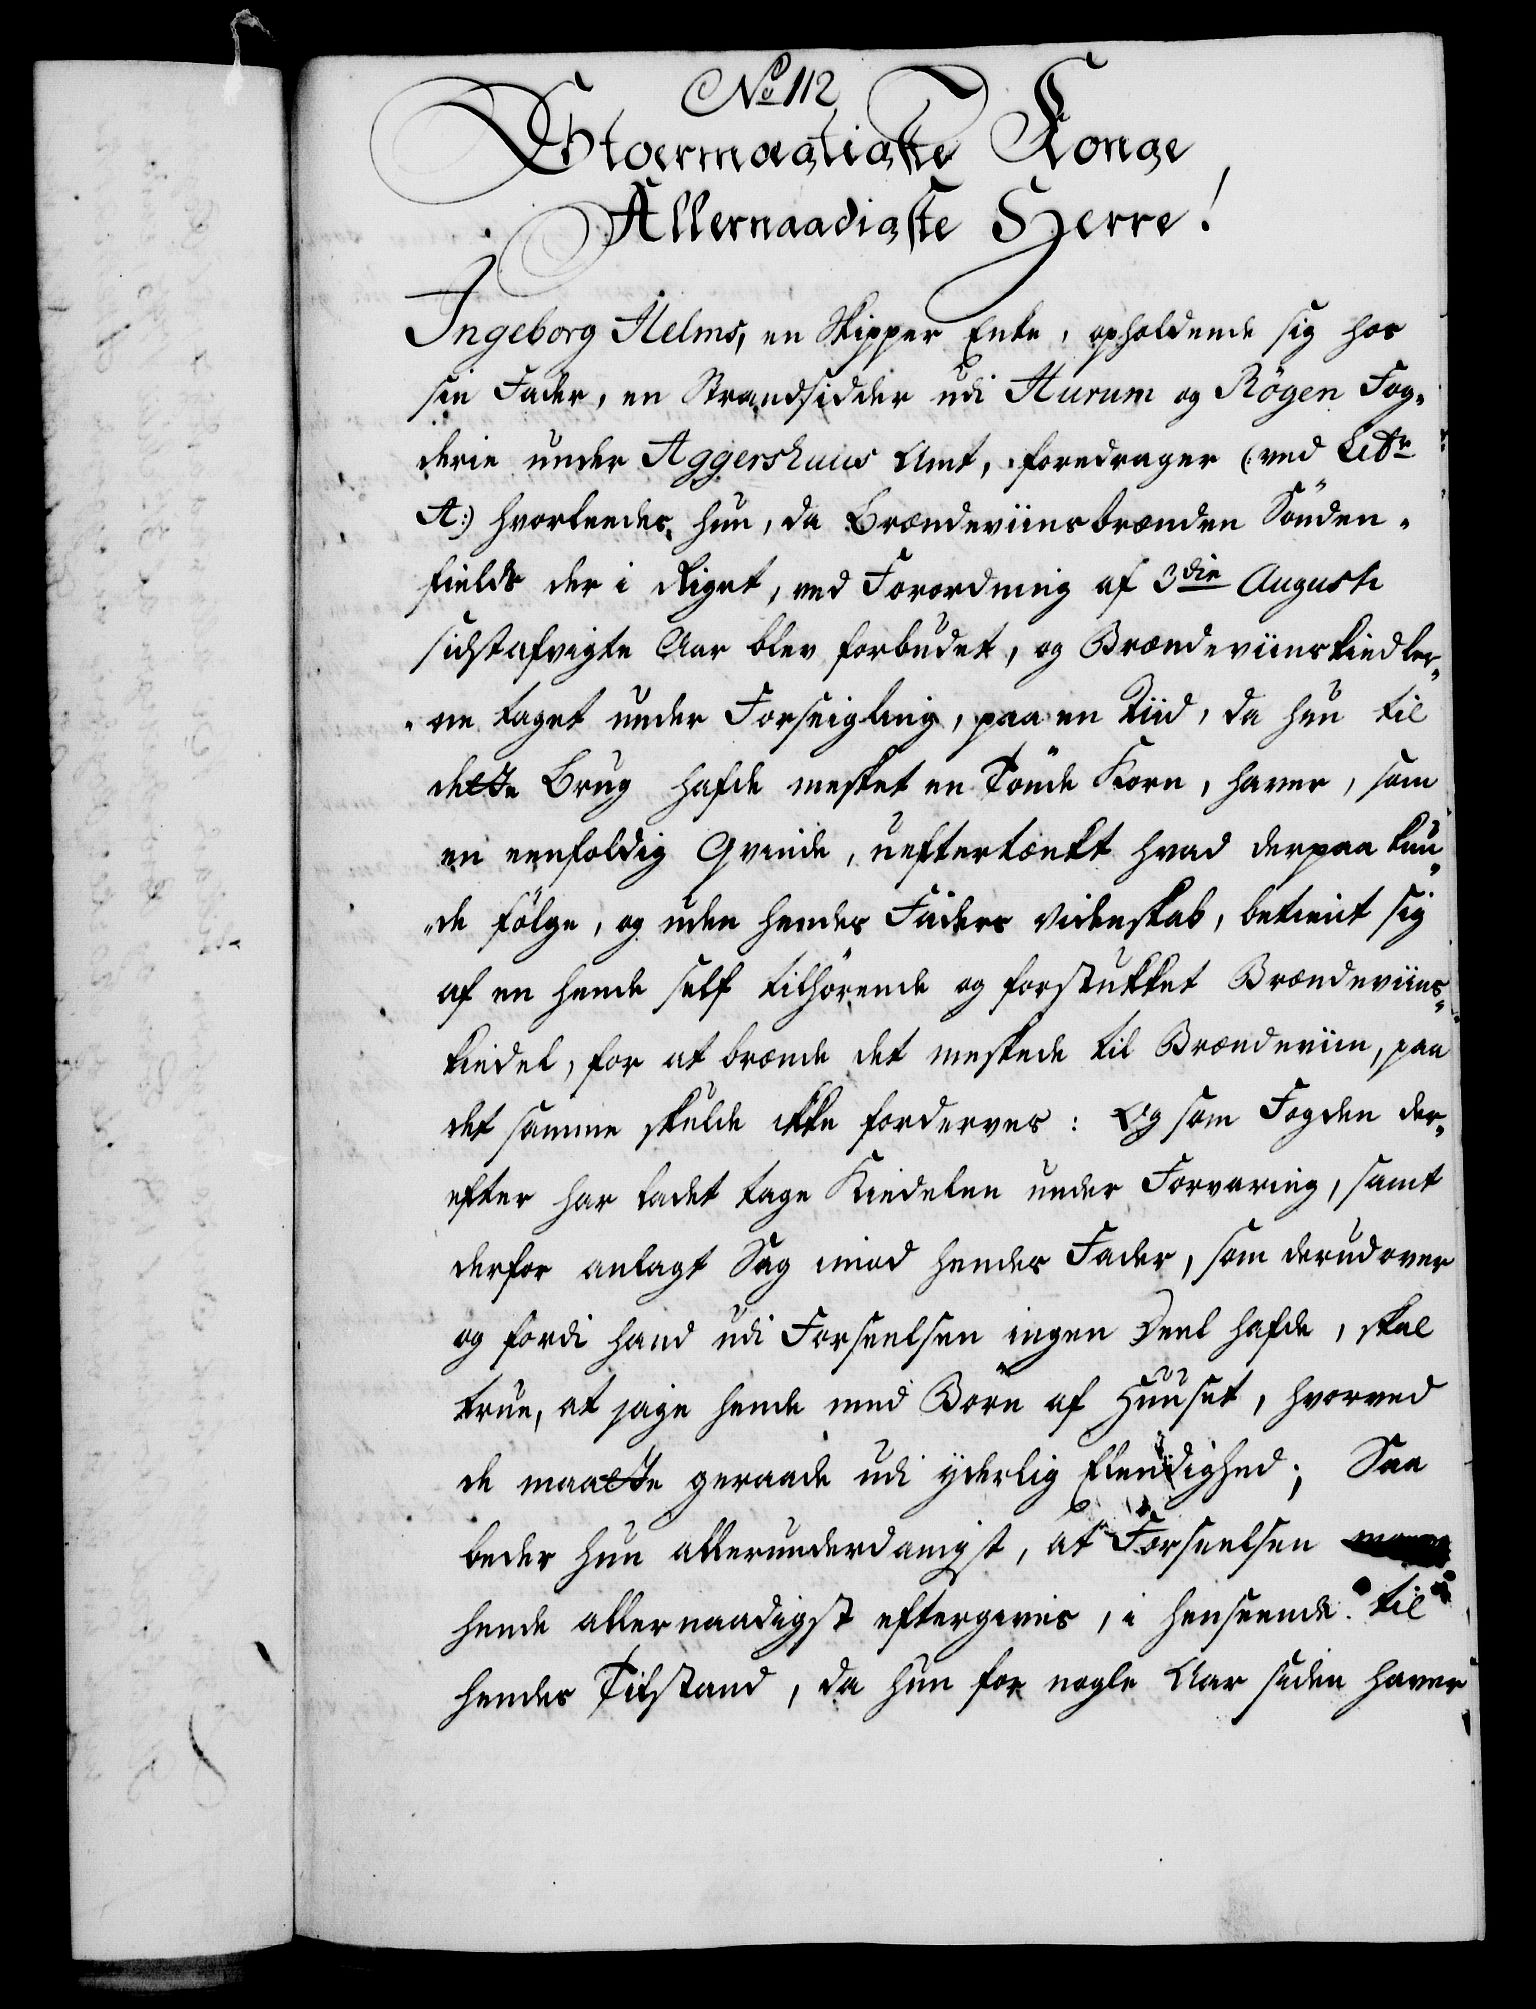 No 112
Stormægtigste Konge
Allernaadigste Herre!
Ingeborg Helms, en Skipper Enke, opholdende sig hos
sin Fader, en Strandsidder udi Hurum og Rögen Fog-
derie under Aggershuus Amt, foredrager (:ved Littr
A:) hvorledes hun, da Brændeviinsbrænden Sönden-
fields der i Riget, ved Forordning af 3die Augusti
sidstafvigte Aar blev forbudet, og Brændeviinskiedler-
-ne taget under Forseigling, paa en Tiid, da hun til
dette Brug hafde mesket en Tönde Korn, haver, som
en eenfoldig Qvinde, ueftertænkt hvad derpaa kun-
-de fölge, og uden hendes Faders Videnskab, betient sig
af en hende self tilhörende og forstukket Brændeviins-
kiedel, for at brænde det meskede til Brændeviin, paa
det samme skulde ikke forderves: Og som Fogden der-
efter har ladet tage Kiedelen under Forvaring, samt
derfor anlagt Sag imod hendes Fader, som derudover
og fordi hand udi Forseelsen ingen Deel hafde, skal
true, at jage hende med Börn af Huuset, hvorved
de maatte geraade udi yderlig Elendighed; Saa
beder hun allerunderdanigst, at Forseelsen
hende allernaadigst eftergives, i henseende til
hendes Tilstand, da hun for nogle Aar siden haver